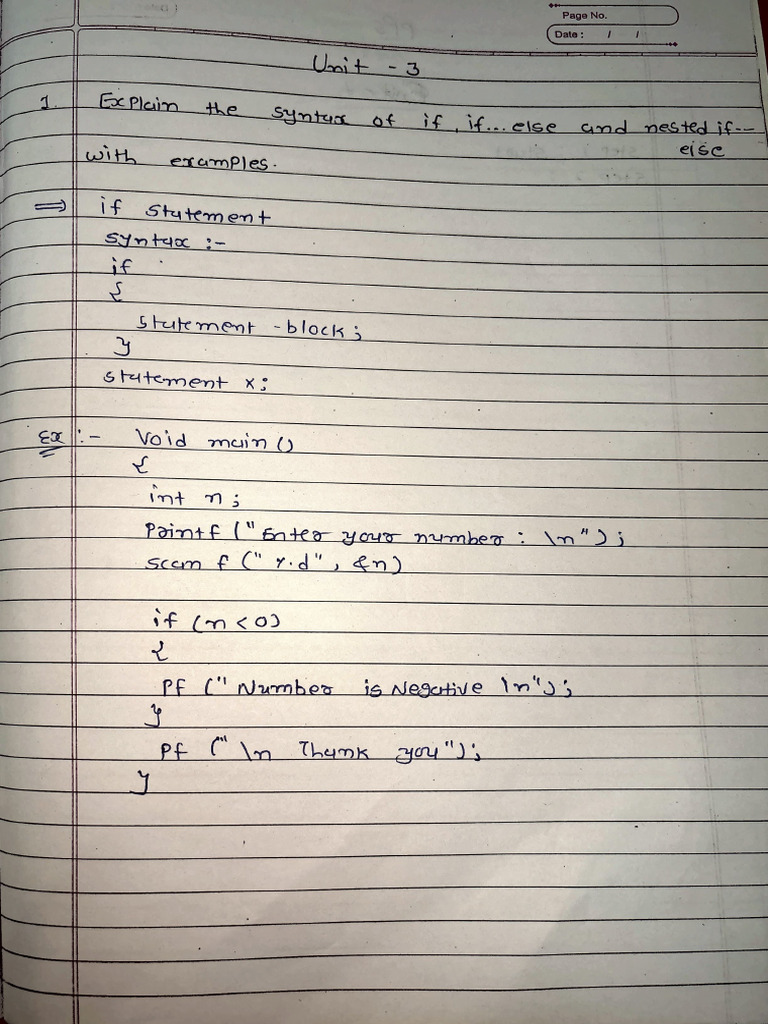 Page No.
Date : / /
Unit - 3
1. Explain the syntax of if, if... else and nested if---
else
with examples.
⇒ if statement
syntax :-
if
{
statement -block;
}
statement x;
Ex :- Void main()
{
int n;
Printf ("Enter your number : \n");
scan f ("%d", &n)
if (n < 0)
{
Pf ("Number is Negative \n");
}
Pf ("\n Thank you");
}